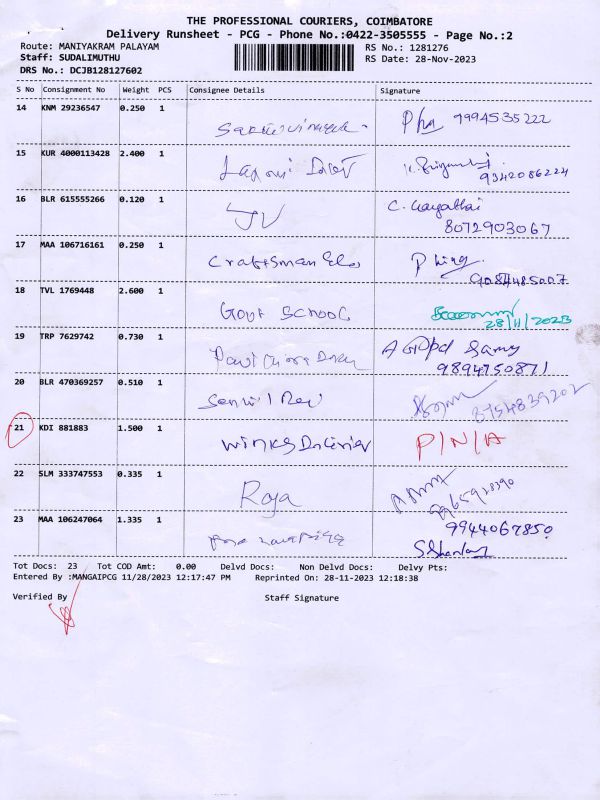 THE PROFESSIONAL COURIERS, COIMBATORE
Delivery Runsheet - PCG - Phone No.:0422-3505555 - Page No.:2
Route: MANIYAKRAM PALAYAM RS No.: 1281276
Staff: SUDALIMUTHU RS Date: 28-Nov-2023
DRS No.: DCJB128127602
S No Consignment No Weight PCS Consignee Details Signature
14 KNM 29236547 0.250 1
9994535222
15 KUR 4000113428 2.400 1
Laxmi
9342086224
16 BLR 615555266 0.120 1
JV C. Gayathri
8072903067
17 MAA 106716161 0.250 1
Craftsman
18 TVL 1769448 2.600 1
Govt School
28/11/2023
19 TRP 7629742 0.730 1
A Gopal Samy
9894750871
20 BLR 470369257 0.510 1
8754839202
21 KDI 881883 1.500 1
P/N/A
22 SLM 333747553 0.335 1
Roja
23 MAA 106247064 1.335 1
9944067850
Tot Docs: 23 Tot COD Amt: 0.00 Delvd Docs: Non Delvd Docs: Delvy Pts:
Entered By :MANGAIPCG 11/28/2023 12:17:47 PM Reprinted On: 28-11-2023 12:18:38
Verified By Staff Signature